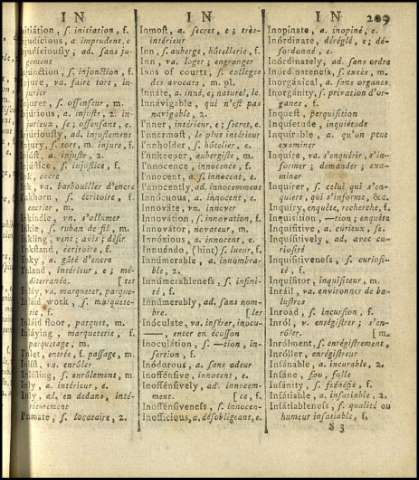 IN IN IN 209
s. initiation, f.
a. imprudent, e
ad. sans ju-
gement
s. injonction, f.
va. faire tort, in-
jurier
s. offenseur, m.
a. injuste, 2. in-
jurieux, se; offensant, e.
ad. injustement
s. tort, m. injure, f.
a. injuste, 2.
s. injustice, f.
s. encre
va. barbouiller d'encre
s. écritoire, f.
encrier, m.
va. s'allumer
s. ruban de fil, m.
vent; avis; désir
écritoire, f.
Inky, a. gâté d'encre
Inland, intérieur, e; mé-
va. marqueter, parque-
work, s. marquete-
rie, f.
Inlaid floor, parquet, m.
Inlaying, marqueterie, f.
parquetage, m.
Inlet, entrée, f. passage, m.
va. enrôler
s. enrôlement, m
Inly, a. intérieur, e.
Inly, ad. en dedans, inté-
rieurement
Inmate, s. locataire, 2.
Inmost, a. secret, e; très-
intérieur
Inn, s. auberge, hôtellerie, f.
Inn, va. loger; engranger
Inns of courts, s. colleges
des avocats, m. pl.
Innáte, a. inné, e; naturel, le
Innávigable, qui n'est pas
navigable, 2.
I'nner, intérieur, e; secret, e.
I'nnermost, le plus intérieur
I'nnholder, s. hôtelier, e.
I'nnkeeper, aubergiste, m.
I'nnocence, innocence, f.
I'nnocent, a. s. innocent, e.
I'nnocently, ad. innocemment
Innócuous, a. innocent, e
I'nnovate, va. innover
Innovátion, s. innovation, f.
Innovátor, novateur, m.
Innóxious, a. innocent, e.
Innuéndo, (hint) s. lueur, f.
Innúmerable, a. innombra-
ble, 2.
Innúmerableness, s. infini-
té, f.
Innúmerably, ad. sans nom-
bre. [ler
Inóculate, va. insérer, inocu-
——, enter en écusson
Inoculátion, s. —tion, in-
sertion, f.
Inódorous, a. sans odeur
Inoffénsive, innocent, e.
Inoffénsively, ad. innocem-
ment. [ce, f.
Inoffénsiveness, s. innocen-
Inofficious, a. désobligeant, e.
Inopinate, a. inopiné, e.
Inórdinate, déréglé, e; dé-
sordonné, e.
Inórdinately, ad. sans ordre
s. excès, m.
Inorgánical, a. sans organes
Inorgánity, s. privation d'or-
ganes, f.
Inquest, perquisition
Inquiétude, inquiétude
Inquírable, a. qu'on peut
examiner
Inquire, va. s'enquérir, s'in-
former; demander; exa-
miner
Inquírer, s. celui qui s'en-
quiert, qui s'informe, &ca.
Inquíry, enquête, recherche, f.
Inquisítion, —tion; enquête
Inquísitive, a. curieux, se.
Inquísitively, ad. avec cu-
riosité
Inquísitiveness, s. curiosi-
té, f.
Inquísitor, inquisiteur, m.
Inráil, va. environner de ba-
lustres
Inroad, s. incursion, f.
Inról, v. enrégistrer; s'en-
rôler. [m.
Inrólment, s. enrégistrement,
Inróller, enrégistreur
Insánable, a. incurable, 2.
Insáne, fou, folle
Insánity, s. frénésie, f.
Insátiable, a. insatiable, 2.
Insátiableness, s. qualité ou
humeur insatiable, f.
S 3